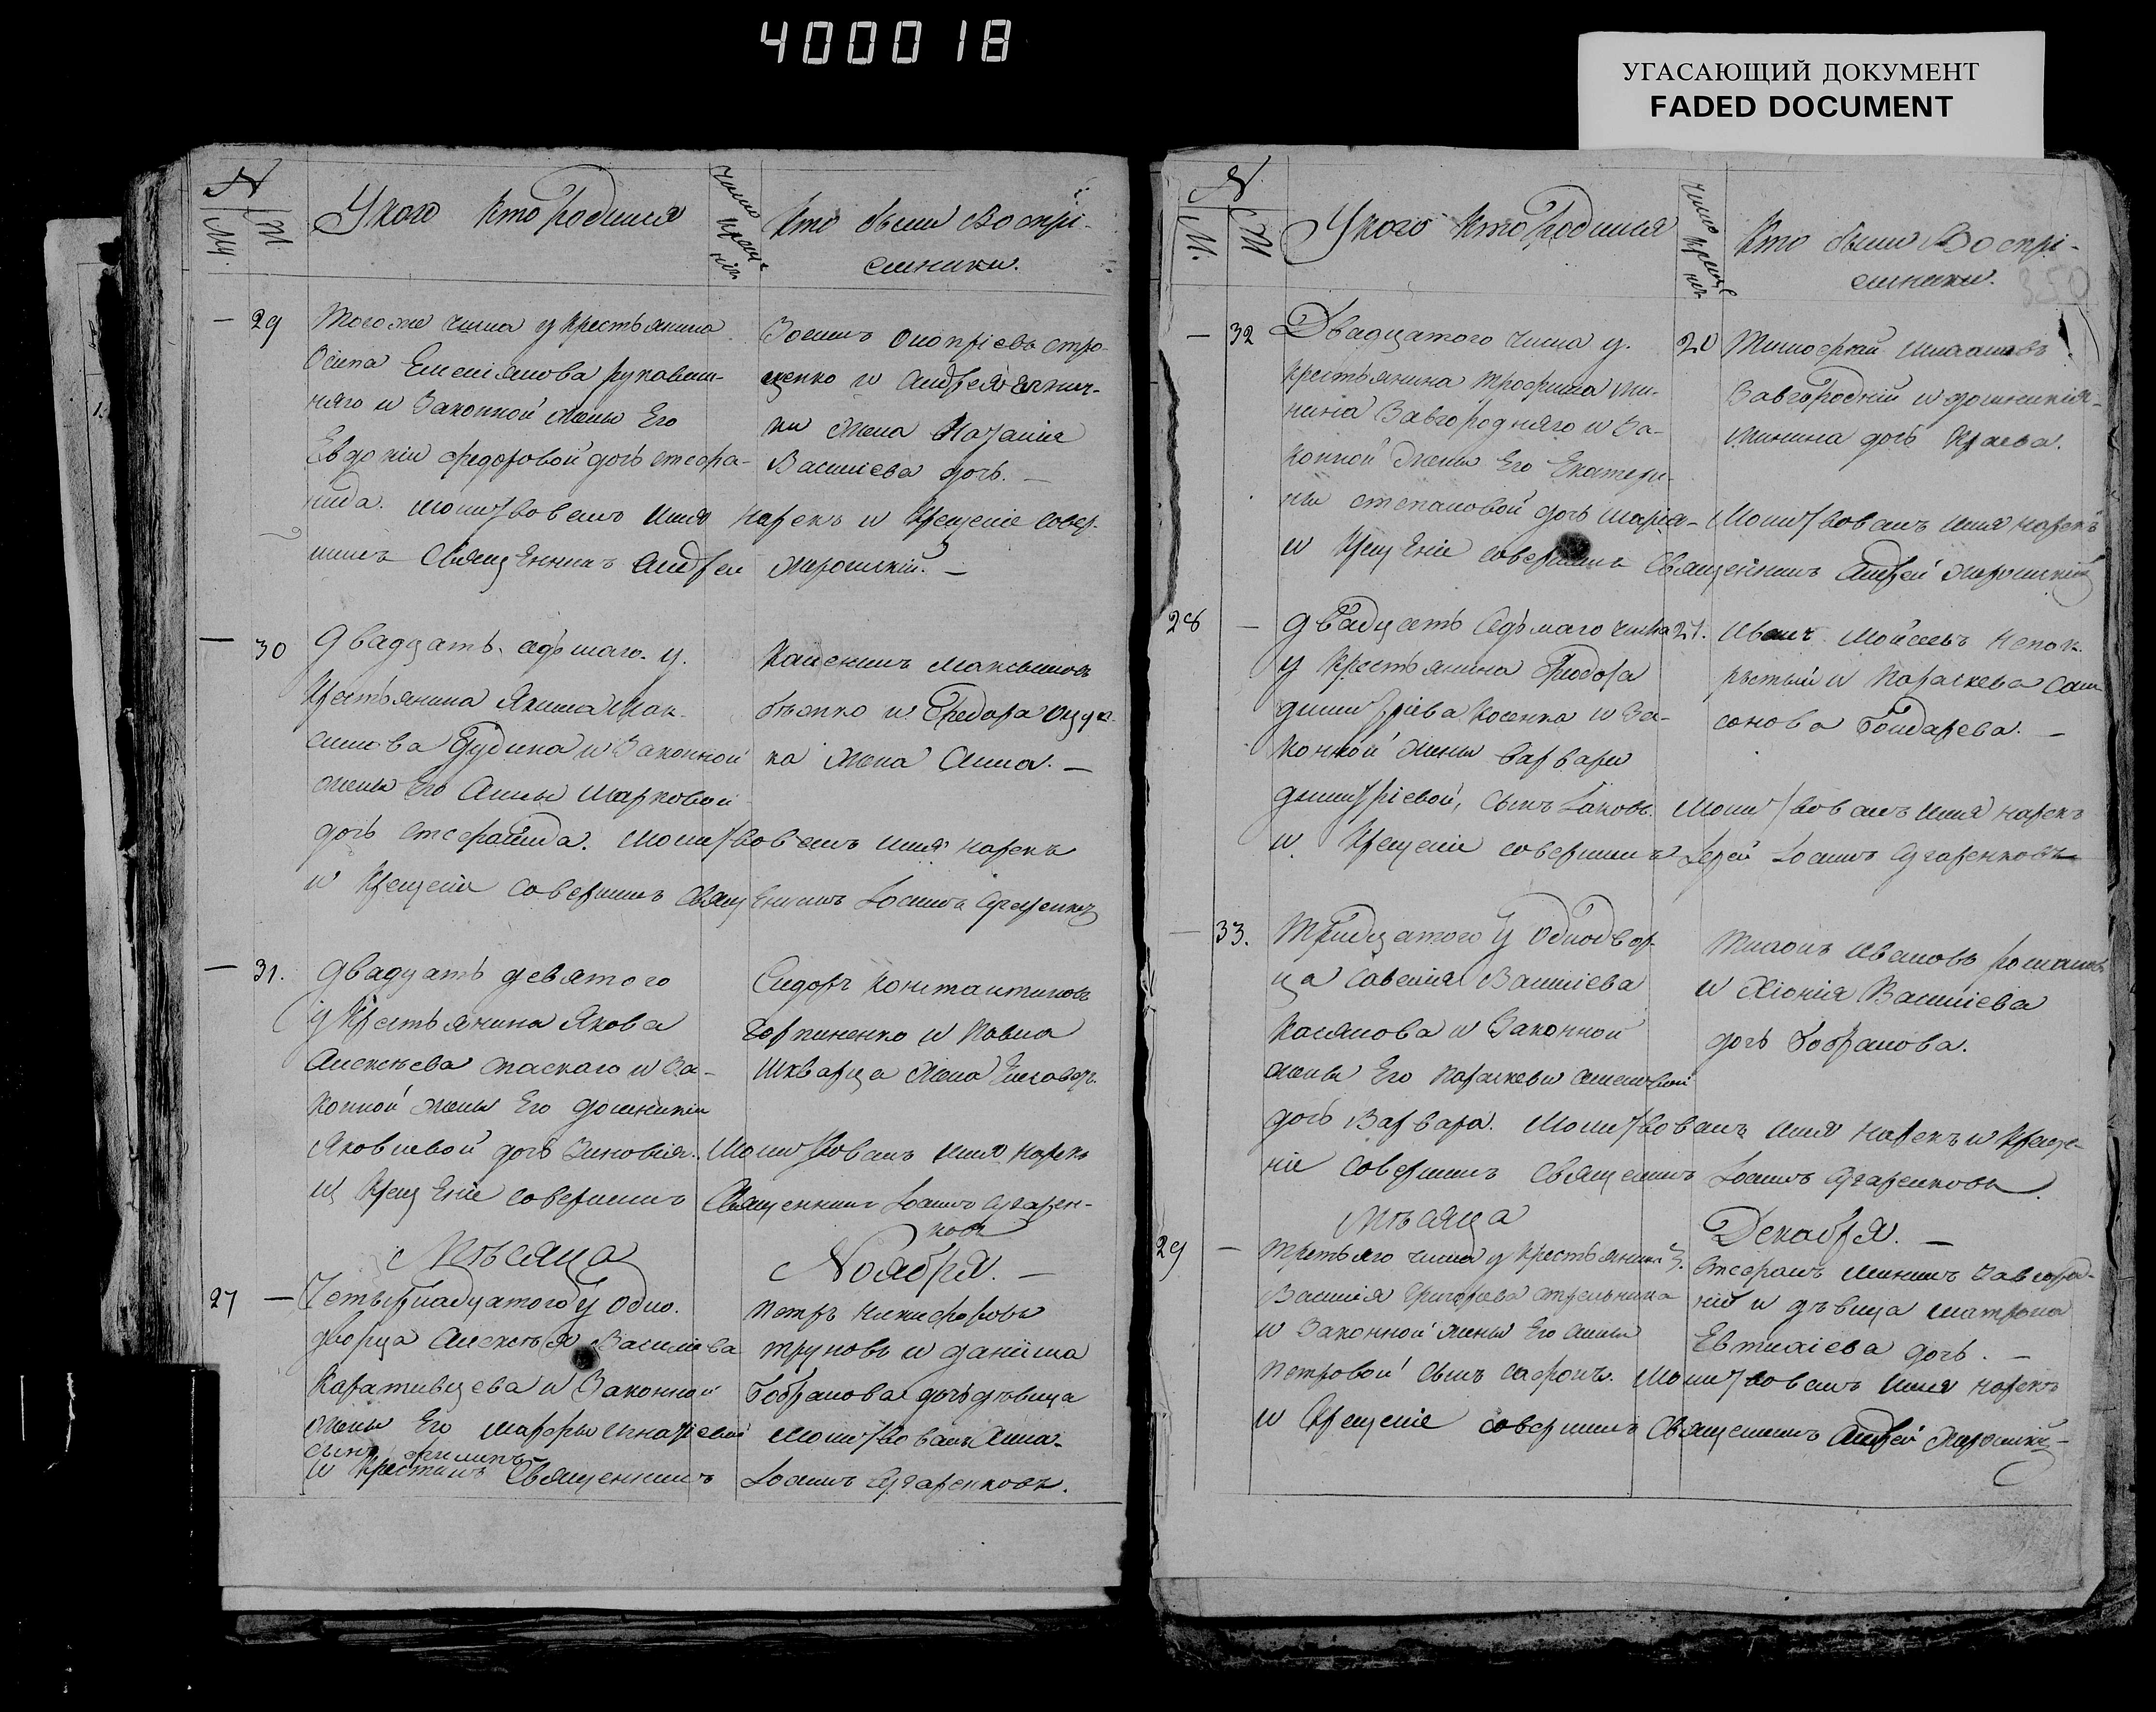 400018
УГАСАЮЩИЙ ДОКУМЕНТ
FADED DOCUMENT
N
М. Ж
У кого кто родился
число креще-
нія
Кто были Воспрі-
емники.
— 29 Тогоже числа у крестьянина
Осипа Емеліянова
няго и Законной жены Его
Евдокіи Федоровой дочь стефа-
нида. молитвовалъ имя нарекъ и Крещеніе Совер-
шилъ Священникъ Андрей
и Андрея
жена Наталія
Василіева дочь. —
— 30 Двадцать седмаго у
Крестьянина Якима Мак-
симова Гудина и Законной
жены Его Анны Марковой
дочь Стефанида. Молитвовалъ имя нарекъ
и Крещеніе совершилъ Священникъ Іоаннъ
Максимовъ
и Федора
жена Анна. —
— 31. Двадцать девятого
у Крестьянина Якова
Алексѣева и За-
конной жены Его Домникіи
Яковлевой дочь Зиновія. Молитвовалъ имя нарекъ
и Крещеніе совершилъ Священникъ Іоаннъ Сугарен-
ковъ
Сидоръ Константиновъ
и Павла
Шкварца жена
Мѣсяца Ноября. —
27 — Четырнадцатого у Одно-
дворца Алексѣя Василіева
и Законной
жены Его Марфы Игнатіевой
сынъ Филипъ
Молитвовалъ
и Крестилъ Священникъ Іоаннъ Сугаренковъ.
Петръ Никифоровъ
Труновъ и
Бобранова дочь дѣвица
N
М. Ж
У кого кто родился
число креще-
нія
Кто были Воспрі-
емники.
350
— 32 Двадцатого числа у 20
крестьянина Трофима Ми-
нина Завгородняго и За-
конной жены Его Екатери-
ны степановой дочь Марія — Молитвовалъ имя нарекъ
и Крещеніе совершилъ Священникъ Андрей
Тимофей
Завгородній и Домникія
Минина дочь
28 — Двадцать Седьмаго числа 27.
у Крестьянина Феодора
Димитріева Косенка и За-
конной жены Варвары
Димитріевой, сынъ Іаковъ. Молитвовалъ имя нарекъ
и Крещеніе совершилъ Іерей Іоаннъ Сугаренковъ
Иванъ Мойсеевъ Непок-
рытый и Параскева Сам-
сонова Бондарева. —
— 33. Тридцатого у Однодвор-
ца Савелія Василіева
Касянова и Законной
жены Его Параскевы
дочь Варвара. Молитвовалъ имя нарекъ и Креще-
ніе совершилъ Священникъ Іоаннъ Сугаренковъ.
Ивановъ Романовъ
и Хіонія Василіева
дочь Бобранова.
Мѣсяца Декабря. —
29 — Третьяго числа у Крестьянина 3.
Василія Григорева Стрельника
и Законной жены Его Анны
Петровой сынъ Сафонъ. Молитвовалъ имя нарекъ
и Крещеніе совершилъ Священникъ Андрей
Стефанъ Мининъ Завгород-
ній и дѣвица Матрона
Евтихіева дочь. —